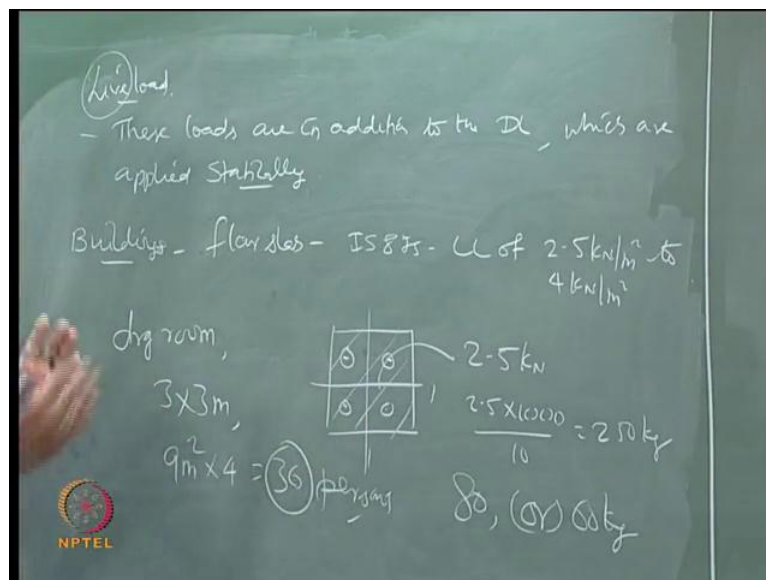 Live load.
- These loads are in addition to the DL, which are
applied statically
Buildings - floor slabs - IS875 - LL of 2.5kN/m² to
4kN/m²
drg room,
3x3m,
9m² x 4 = 36 persons
2.5kN
1
2.5x1000
10
= 250kg
80, (or) 60kg
NPTEL